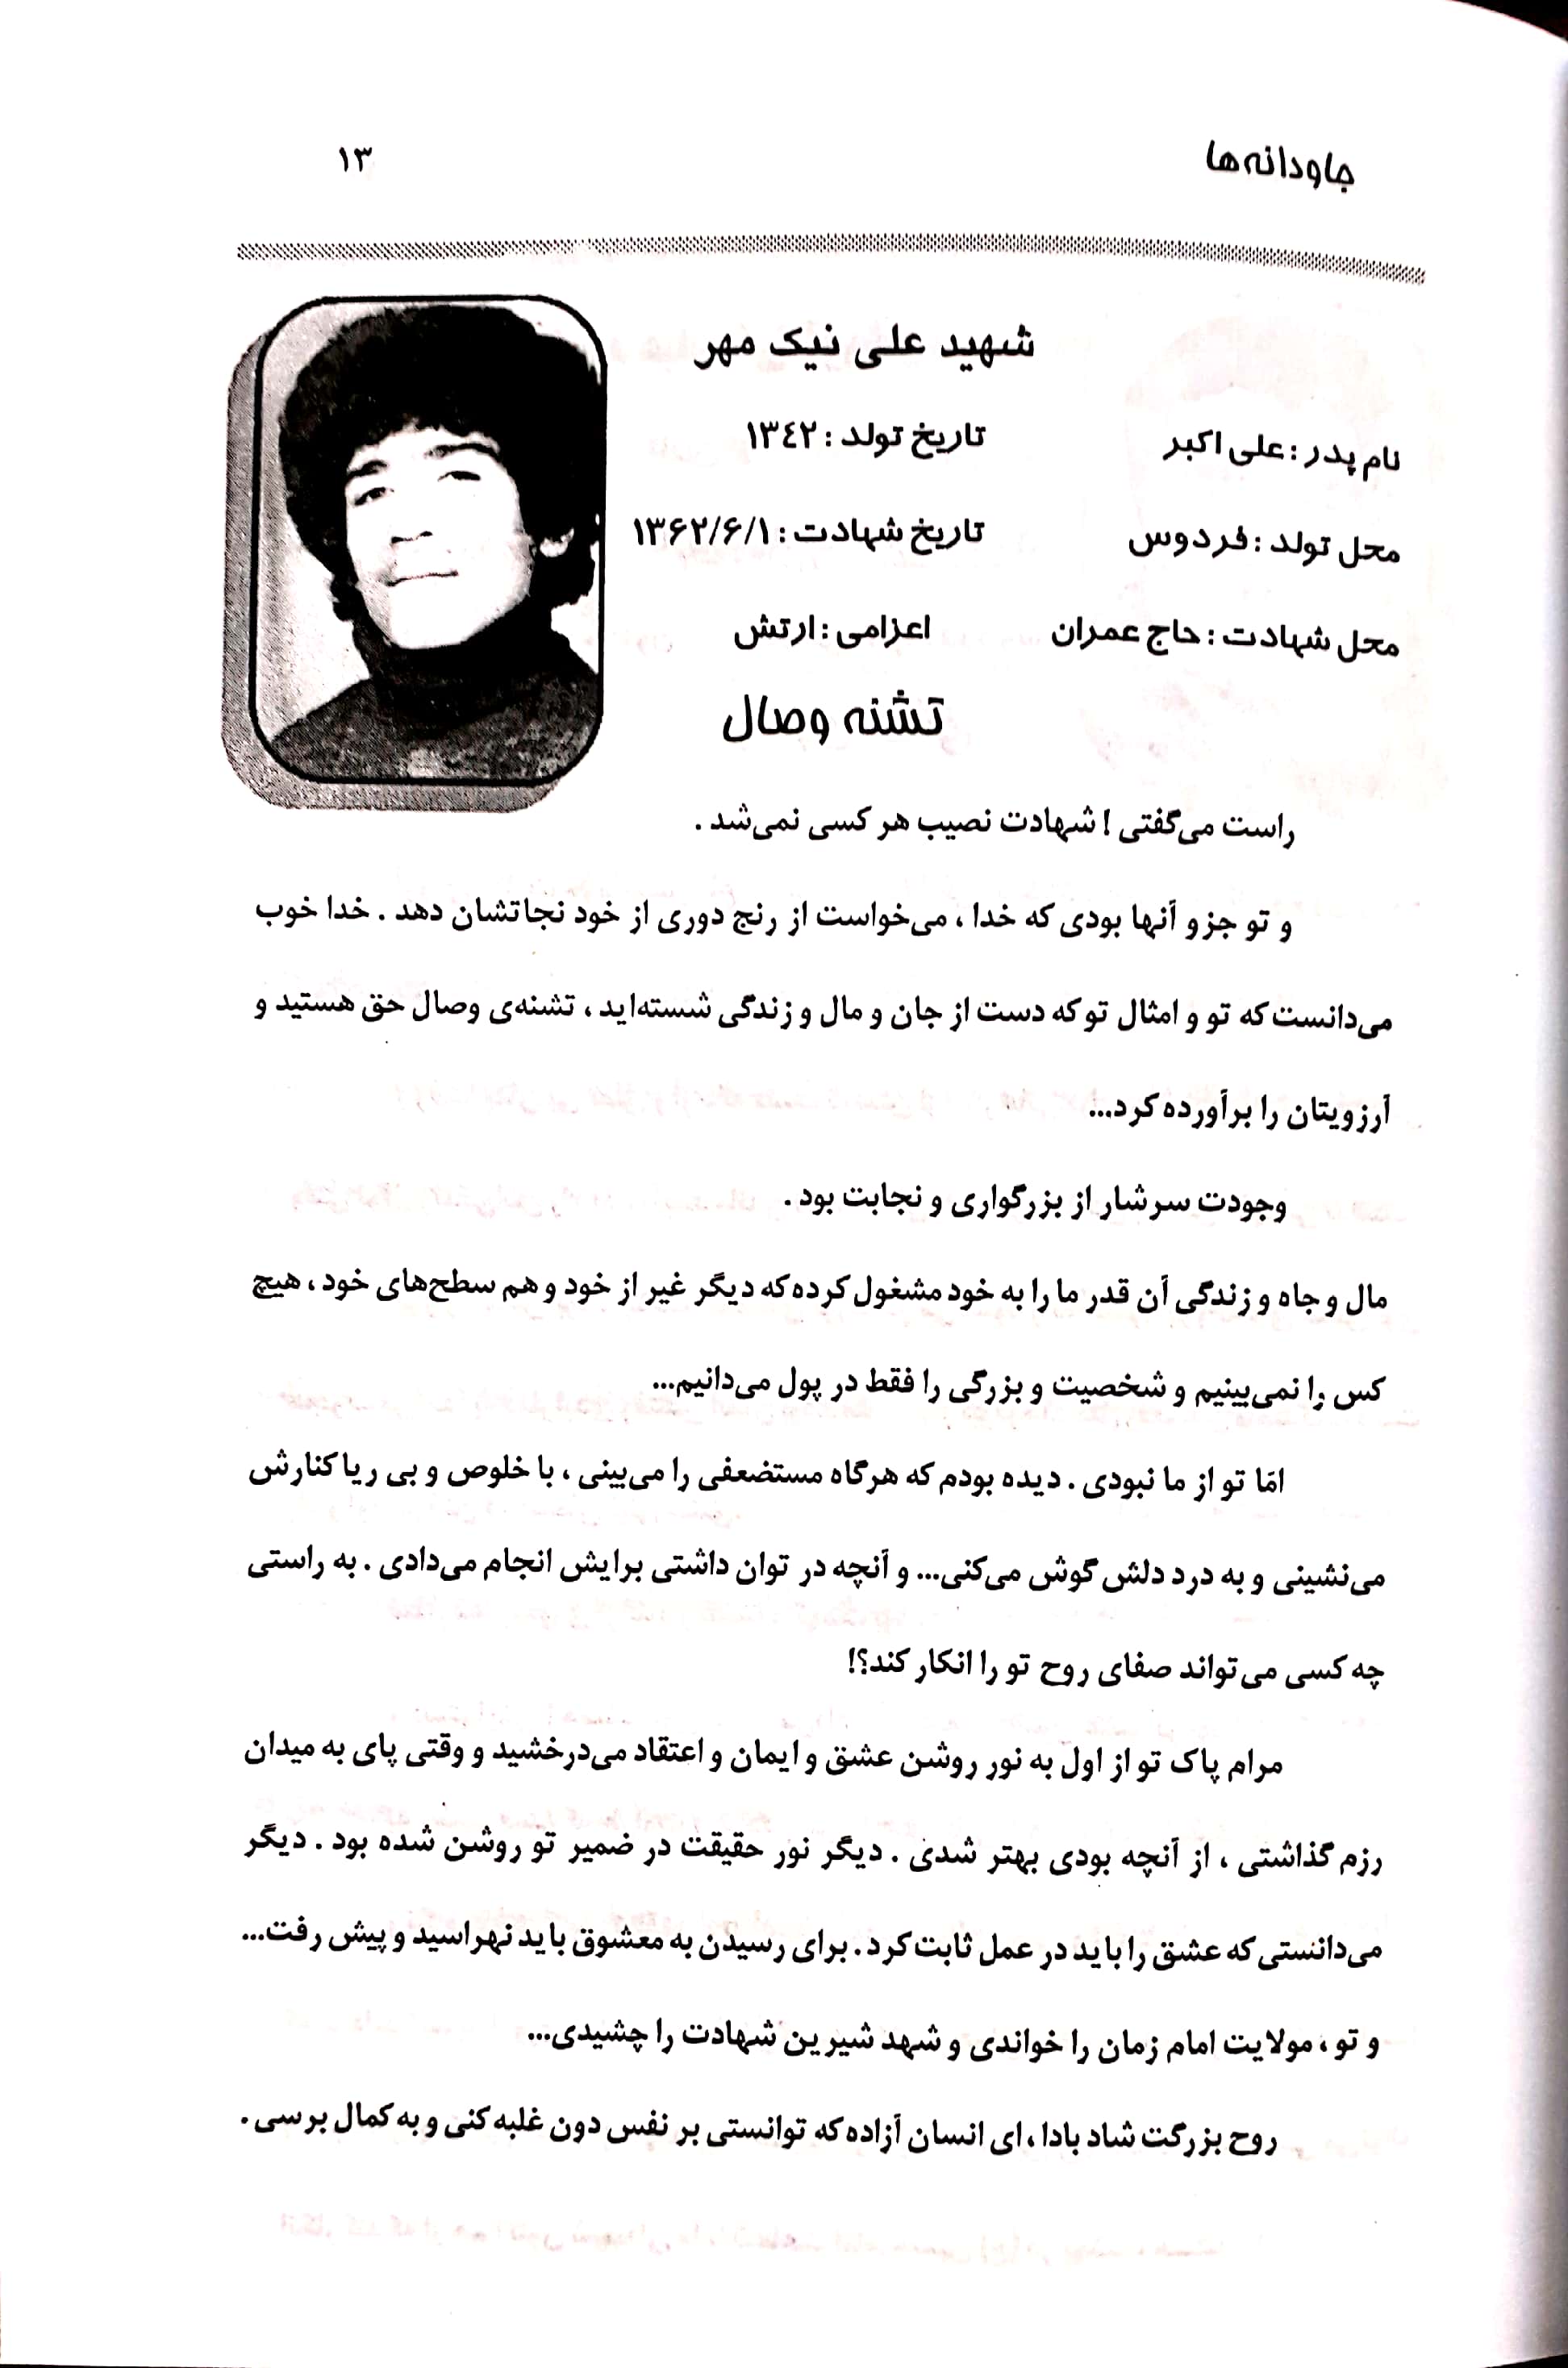 جاودانه‌ها ۱۳
شهید علی نیک مهر
نام پدر : علی اکبر تاریخ تولد : ۱۳٤۲
محل تولد : فردوس تاریخ شهادت : ۱۳۶۲/۶/۱
محل شهادت : حاج عمران اعزامی : ارتش
تشنه وصال
راست می‌گفتی ! شهادت نصیب هر کسی نمی‌شد .
و تو جزو آنها بودی که خدا ، می‌خواست از رنج دوری از خود نجاتشان دهد . خدا خوب
می‌دانست که تو و امثال تو که دست از جان و مال و زندگی شسته‌اید ، تشنه‌ی وصال حق هستید و
آرزویتان را برآورده کرد...
وجودت سرشار از بزرگواری و نجابت بود .
مال و جاه و زندگی آن قدر ما را به خود مشغول کرده که دیگر غیر از خود و هم سطح‌های خود ، هیچ
کس را نمی‌بینیم و شخصیت و بزرگی را فقط در پول می‌دانیم...
امّا تو از ما نبودی . دیده بودم که هرگاه مستضعفی را می‌بینی ، با خلوص و بی ریا کنارش
می‌نشینی و به درد دلش گوش می‌کنی... و آنچه در توان داشتی برایش انجام می‌دادی . به راستی
چه کسی می‌تواند صفای روح تو را انکار کند؟!
مرام پاک تو از اول به نور روشن عشق و ایمان و اعتقاد می‌درخشید و وقتی پای به میدان
رزم گذاشتی ، از آنچه بودی بهتر شدی . دیگر نور حقیقت در ضمیر تو روشن شده بود . دیگر
می‌دانستی که عشق را باید در عمل ثابت کرد . برای رسیدن به معشوق باید نهراسید و پیش رفت...
و تو ، مولایت امام زمان را خواندی و شهد شیرین شهادت را چشیدی...
روح بزرگت شاد بادا ، ای انسان آزاده که توانستی بر نفس دون غلبه کنی و به کمال برسی .